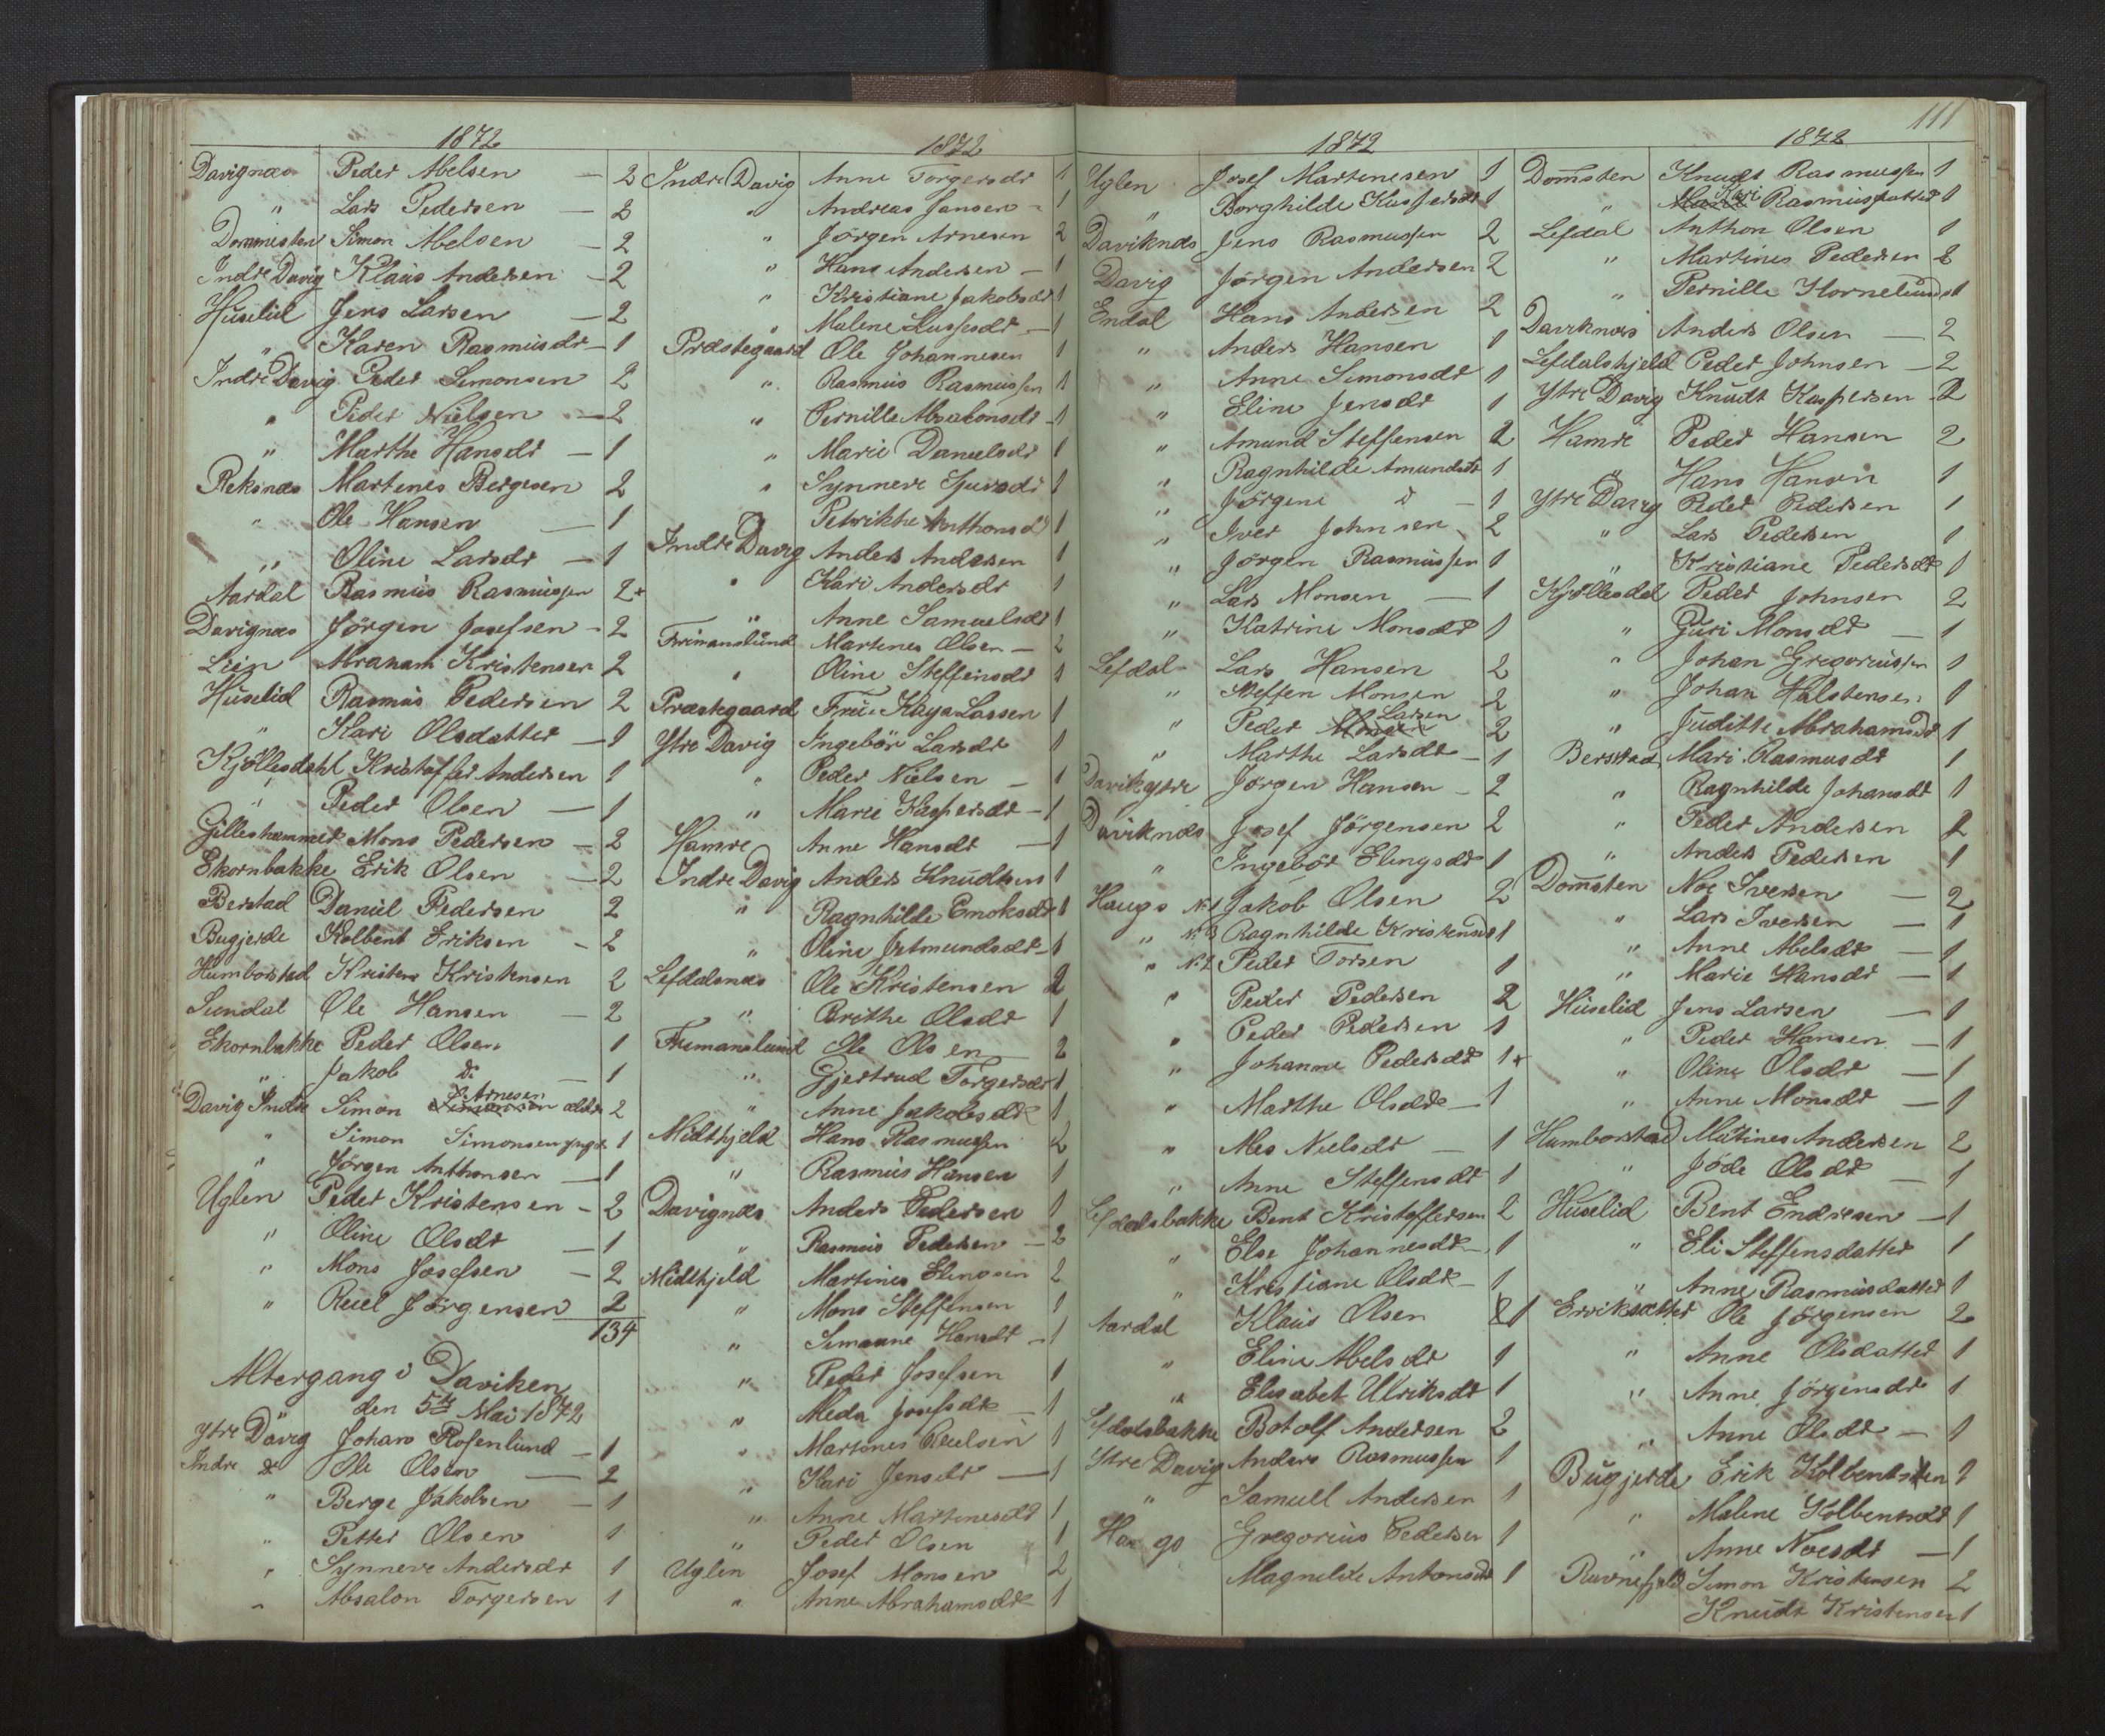 1872
Davignæs Peder Abelsen — 2
" Lars Pedersen — 2
Dommesten Simon Abelsen — 2
Indre Davig Klaus Andersen — 2
Huselid Jens Larsen — 2
" Karen Rasmusdr — 1
Indre Davig Peder Simonsen 2
" Peder Nielsen — 2
" Marthe Hansdr — 1
Reksnæs Martines Bergesen 2
" Ole Hansen — 1
" Oline Larsdr — 1
Aardal Rasmus Rasmussen 2+
Davignæs Jörgen Josefsen - 2
Lien Abraham Kristensen 2
Huselid Rasmus Pedersen 2
" Kari Olsdatter — 1
Kjöllesdahl Kristoffer Andersen 1
" Peder Olsen — 1
Gilleshammer Mons Pedersen — 2
Ekornbakke Erik Olsen — 2
Berstad Daniel Pedersen 2
Bugjerde Kolbent Eriksen - 2
Humborstad Kristen Kristensen 2
Sundal Ole Hansen — 2
Ekornbakke Peder Olsen 1
" Jakob do — 1
Davig Indre Simon Arnesen ældr 2
" Simon Simonsen yngr 1
" Jörgen Anthonsen — 1
Uglen Peder Kristensen - 2
" Oline Olsdr — 1
" Mons Josefsen — 2
" Reiel Jörgensen 2
134
Altergang i Daviken
den 5te Mai 1872
Ytre Davig Johan Rosenlund — 1
Indre do Ole Olsen — 2
" Berge Jakobsen — 1
" Petter Olsen 1
" Synneve Andersdr 1
" Absalon Torgersen 1
1872
Indre Davig Anne Torgersdr 1
" Andreas Jansen - 1
" Jörgen Arnesen 2
" Hans Andersen — 1
" Kristiane Jakobsdr 1
" Malene — 1
Præstegaard Ole Johannesen 1
" Rasmus Rasmussen 1
" Pernille Absalonsdr 1
" Marie Danielsdr 1
" Synneve 1
" Petrikke Anthonsd 1
Indre Davig Anders Andersen 1
" Kari Andersdr 1
" Anne Samuelsdr 1
Frimanslund Martines Olsen — 2
" Oline Steffensdr 1
Præstegaard Frue Kaya Lassen 1
Ytre Davig Ingebör Larsdr 1
" Peder Nielsen — 1
" Marie Kaspersdr — 1
Hamre Anne Hansdr — 1
Indre Davig Anders Knudtsen 1
" Ragnhilde 1
" Oline 1
Lefdalsnæs Ole Kristensen 2
" Brithe Olsdr 1
Frimanslund Ole Olsen 2
" Gjertrud Torgersdr 1
" Anne Jakobsdr 1
Midthjeld Hans Rasmussen 2
" Rasmus Hansen 1
Davignæs Anders Pedersen 1
" Rasmus Pedersen — 2
Midthjeld Martines Elingsen 2
" Mons Steffensen 1
" Simane Hansdr — 1
" Peder Josefsen 1
" Meda Josefsdr — 1
" Martines 1
" Kari Jensdr — 1
" Anne Martinesdr 1
" Peder Olsen 1
Uglen Josef Monsen 2
" Anne Abrahamsdr 1
111
1872
Uglen Josef Martinesen 1
" Borghilde Kaspersdr 1
Daviknæs Jens Rasmussen 2
Davig Jörgen Andersen 2
Endal Hans Andersen 2
" Anders Hansen 1
" Anne Simonsdr 1
" Eline Jensdr 1
" Amund Steffensen 2
" Ragnhilde Amundsdr 1
" Jörgine do — 1
" Iver Johnsen 2
" Jörgen Rasmussen 1
" Lars Monsen — 1
" Katrine Monsdr 1
Lefdal Lars Hansen 2
" Steffen Monsen 2
" Peder Larsen 2
" Marthe Larsdr — 1
Davik ytre Jörgen Hansen - 2
Daviknæs Josef Jörgensen 2
" Ingebör Elingsdr 1
Haugs N. 1 Jakob Olsen 2
" N. 3 Ragnhilde Kristensdr 1
" N. 2 Peder Torsen 1
" Peder Pedersen 2
" Peder Pedersen 1
" Johanne Pedersdr 1+
" Marthe Olsdr — 1
" Mes Nielsdr — 1
" Anne Steffensdr 1
Lefdalsbakke Bent Kristoffersen 2
" Else Johannesdr - 1
" Kristiane Olsdr - 1
Aardal Klaus Olsen 1
" Eline Abelsdr 1
" Elisabet Ulriksdr 1
Lefdalsbakke Botolf Andersen 2
Ytre Davig Anders Rasmussen 1
" Samuel Andersen 1
Haugs Gregorius Pedersen 1
Magnilde Antonsdr 1
1872
Domsten Knudt Rasmussen 1
" Kari Rasmusdatter 1
Lefdal Anthon Olsen 1
" Martines Pedersen 2
" Pernille Korneliusdr 1
Daviknæs Anders Olsen — 2
Lefdalshjeld Peder Johnsen — 2
Ytre Davig Knudt Kaspersen 2
Hamre Peder Hansen 2
" Hans Hansen 1
Ytre Davig Peder Pedersen 1
" Lars Pedersen 1
" Kristiane Pedersdr 1
Kjöllesdal Peder Johnsen 2
" Guri Monsdr — 1
" Johan Gregoriussen 1
" Johan Halstensen 1
" Juditte Abrahamsdr 1
Berstad Mari Rasmusdr 1
" Ragnhilde Johansdr 1
" Peder Andersen 2
" Anders Pedersen 1
Domsten Noe Iversen — 2
" Lars Iversen — 1
" Anne Abelsdr — 1
" Marie Hansdr — 1
Huselid Jens Larsen — 1
" Peder Hansen — 1
" Oline Olsdr — 1
" Anne Monsdr — 1
Humborstad Mattines Andersen 2
" Jöde Olsdr — 1
Huselid Bent Endresen — 1
" Eli Steffensdatter 1
" Anne Rasmusdatter 1
Erviksætter Ole Jörgensen 2
" Anne Olsdatter 1
" Anne Jörgensdr 1
" Anne Olsdr — 1
Bugjerde Erik Kolbentsen 2
" Malene Kolbentsdr 1
" Anne Noesdr — 1
Ravnefjeld Simon Kristensen 2
Knudt Kristensen 1